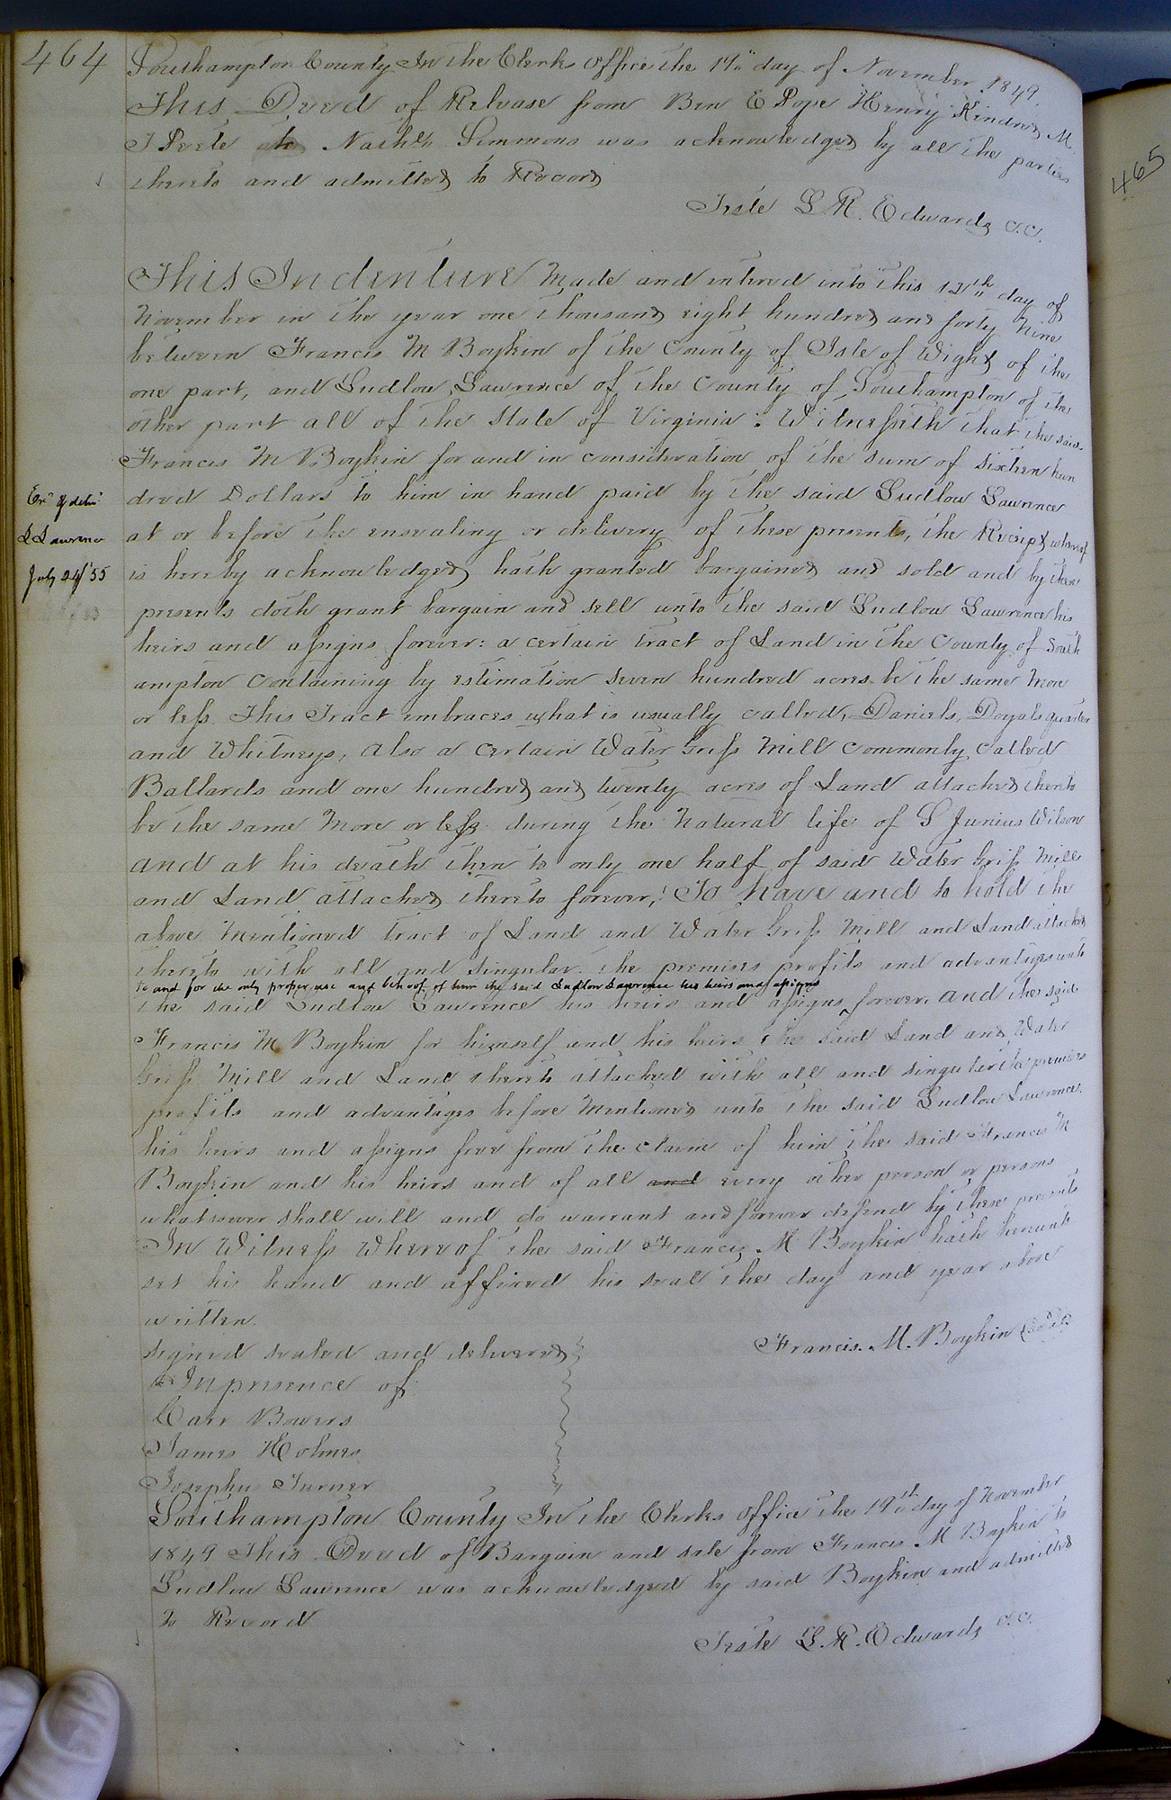 464
Southampton County In the Clerks Office the 19th day of November 1849.
This Deed of Release from Ben E Pope Henry Kindred M.
T Peete Nathl Simmons was acknowledged by all the parties
thereto and admitted to Record
Teste L R. Edwards c.c.
465
This Indenture Made and entered into this 12th day of
November in the year one thousand eight hundred and forty Nine
between Francis M Boykin of the County of Isle of Wight of the
one part, and Ludlow Lawrence of the County of Southampton of the
other part all of the State of Virginia: Witnesseth that the said
Francis M Boykin for and in consideration of the sum of sixteen hun
dred Dollars to him in hand paid by the said Ludlow Lawrence
at or before the ensealing or delivery of these presents, the Receipt whereof
is hereby acknowledged, hath granted bargained and sold and by these
presents doth grant bargain and sell unto the said Ludlow Lawrence his
heirs and assigns forever: a certain tract of Land in the County of South
ampton containing by estimation seven hundred acres be the same More
or less This Tract embraces what is usually called, Daniels, Doyals quarter
and Whitneys, also a certain Water Griss Mill commonly called
Ballards and one hundred and twenty acres of Land attached thereto
be the same More or less during the Natural life of S Junius Wilson
and at his death then to only one half of said Water Griss Mill
and Land attached thereto forever; To have and to hold the
above Mentioned tract of Land and Water Griss Mill and Land attached
thereto with all and singular the premises profits and advantages unto
to and for the only proper use and behoof of him the said Ludlow Lawrence his heirs and assigns
the said Ludlow Lawrence his heirs and assigns forever. And the said
Francis M Boykin for himself and his heirs the said Land and Water
Griss Mill and Land thereto attached with all and singular the premises
profits and advantages before Mentioned unto the said Ludlow Lawrence
his heirs and assigns free from the claim of him the said Francis M
Boykin and his heirs and of all and every other person or persons
whatsoever shall will and do warrant and forever defend by these presents
In Witness Whereof the said Francis M Boykin hath hereunto
set his hand and affixed his seal the day and year above
written.
Francis. M. Boykin (Seal)
Signed sealed and delivered
In presence of
Carr Bowers
James Holmes
Josephus Turner
Southampton County In the Clerks Office the 19th day of November
1849 This Deed of Bargain and sale from Francis M Boykin to
Ludlow Lawrence was acknowledged by said Boykin and admitted
to Record
Teste L. R. Edwards c.c.
L Lawrence
July 24/55